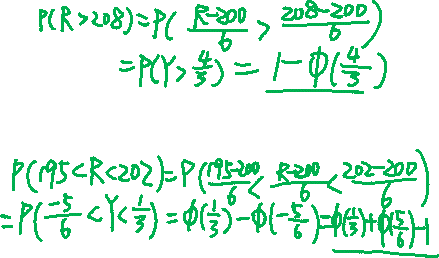 P(R>208)=P(\frac{R-200}{6}>\frac{208-200}{6})
=P(Y>\frac{4}{3})=1-\phi(\frac{4}{3})
P(195<R<202)=P(\frac{195-200}{6}<\frac{R-200}{6}<\frac{202-200}{6})
=P(\frac{-5}{6}<Y<\frac{1}{3})=\phi(\frac{1}{3})-\phi(-\frac{5}{6})=\phi(\frac{1}{3})+\phi(\frac{5}{6})-1